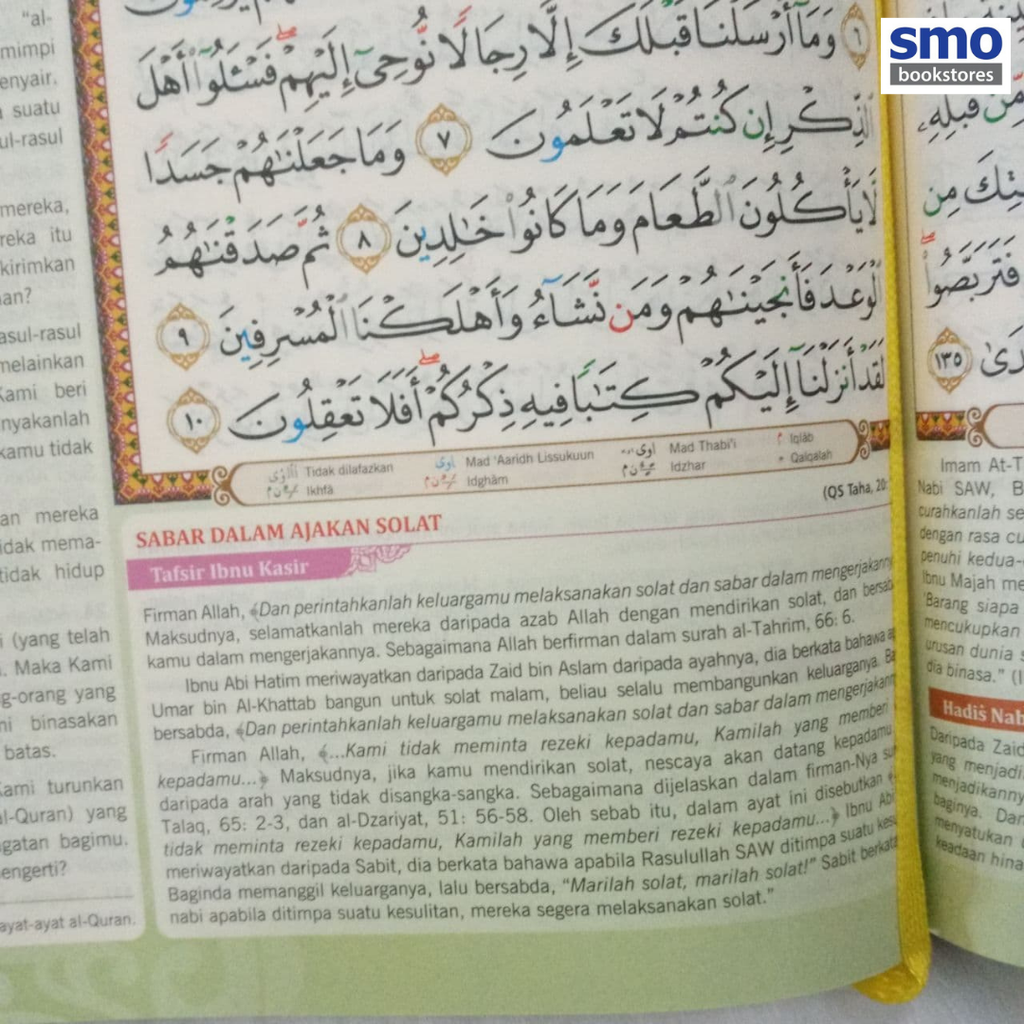 smo
bookstores
٦ وَمَا أَرْسَلْنَا قَبْلَكَ إِلَّا رِجَالًا نُّوحِىٓ إِلَيْهِمْ ۖ فَسْـَٔلُوٓا۟ أَهْلَ
ٱلذِّكْرِ إِن كُنتُمْ لَا تَعْلَمُونَ ٧ وَمَا جَعَلْنَـٰهُمْ جَسَدًا
لَّا يَأْكُلُونَ ٱلطَّعَامَ وَمَا كَانُوا۟ خَـٰلِدِينَ ٨ ثُمَّ صَدَقْنَـٰهُمُ
ٱلْوَعْدَ فَأَنجَيْنَـٰهُمْ وَمَن نَّشَآءُ وَأَهْلَكْنَا ٱلْمُسْرِفِينَ ٩
لَقَدْ أَنزَلْنَآ إِلَيْكُمْ كِتَـٰبًا فِيهِ ذِكْرُكُمْ ۖ أَفَلَا تَعْقِلُونَ ١٠
Tidak dilafazkan Mad 'Aaridh Lissukuun Mad Thabi'i Iqlāb
Ikhfā Idghām Idzhar Qalqalah
(QS Taha, 20:
SABAR DALAM AJAKAN SOLAT
Tafsir Ibnu Kasir
Firman Allah, ﴾Dan perintahkanlah keluargamu melaksanakan solat dan sabar dalam mengerjakann
Maksudnya, selamatkanlah mereka daripada azab Allah dengan mendirikan solat, dan bersab
kamu dalam mengerjakannya. Sebagaimana Allah berfirman dalam surah al-Tahrim, 66: 6.
Ibnu Abi Hatim meriwayatkan daripada Zaid bin Aslam daripada ayahnya, dia berkata bahawa ap
Umar bin Al-Khattab bangun untuk solat malam, beliau selalu membangunkan keluarganya. Ba
bersabda, ﴾Dan perintahkanlah keluargamu melaksanakan solat dan sabar dalam mengerjakan
Firman Allah, ﴾...Kami tidak meminta rezeki kepadamu, Kamilah yang memberi
kepadamu...﴿ Maksudnya, jika kamu mendirikan solat, nescaya akan datang kepadamu
daripada arah yang tidak disangka-sangka. Sebagaimana dijelaskan dalam firman-Nya su
Talaq, 65: 2-3, dan al-Dzariyat, 51: 56-58. Oleh sebab itu, dalam ayat ini disebutkan ﴾
tidak meminta rezeki kepadamu, Kamilah yang memberi rezeki kepadamu...﴿ Ibnu Abi
meriwayatkan daripada Sabit, dia berkata bahawa apabila Rasulullah SAW ditimpa suatu kesu
Baginda memanggil keluarganya, lalu bersabda, “Marilah solat, marilah solat!” Sabit berkata
nabi apabila ditimpa suatu kesulitan, mereka segera melaksanakan solat.”
“al-
mimpi
enyair.
suatu
ul-rasul
mereka,
reka itu
kirimkan
an?
asul-rasul
melainkan
Kami beri
nyakanlah
kamu tidak
an mereka
idak mema-
tidak hidup
i (yang telah
. Maka Kami
g-orang yang
ni binasakan
batas.
Kami turunkan
al-Quran) yang
gatan bagimu.
engerti?
ayat-ayat al-Quran.
مِّن قَبْلِهِۦ
تِكَ مِن
فَتَرَبَّصُوا۟ ۖ
دَىٰ ١٣٥
Imam At-T
Nabi SAW, B
curahkanlah se
dengan rasa cu
penuhi kedua-
Ibnu Majah me
'Barang siapa
mencukupkan
urusan dunia s
dia binasa.” (I
Hadiš Nab
Daripada Zaid
yang menjadi
menjadikanny
baginya. Dan
menyatukan
keadaan hina